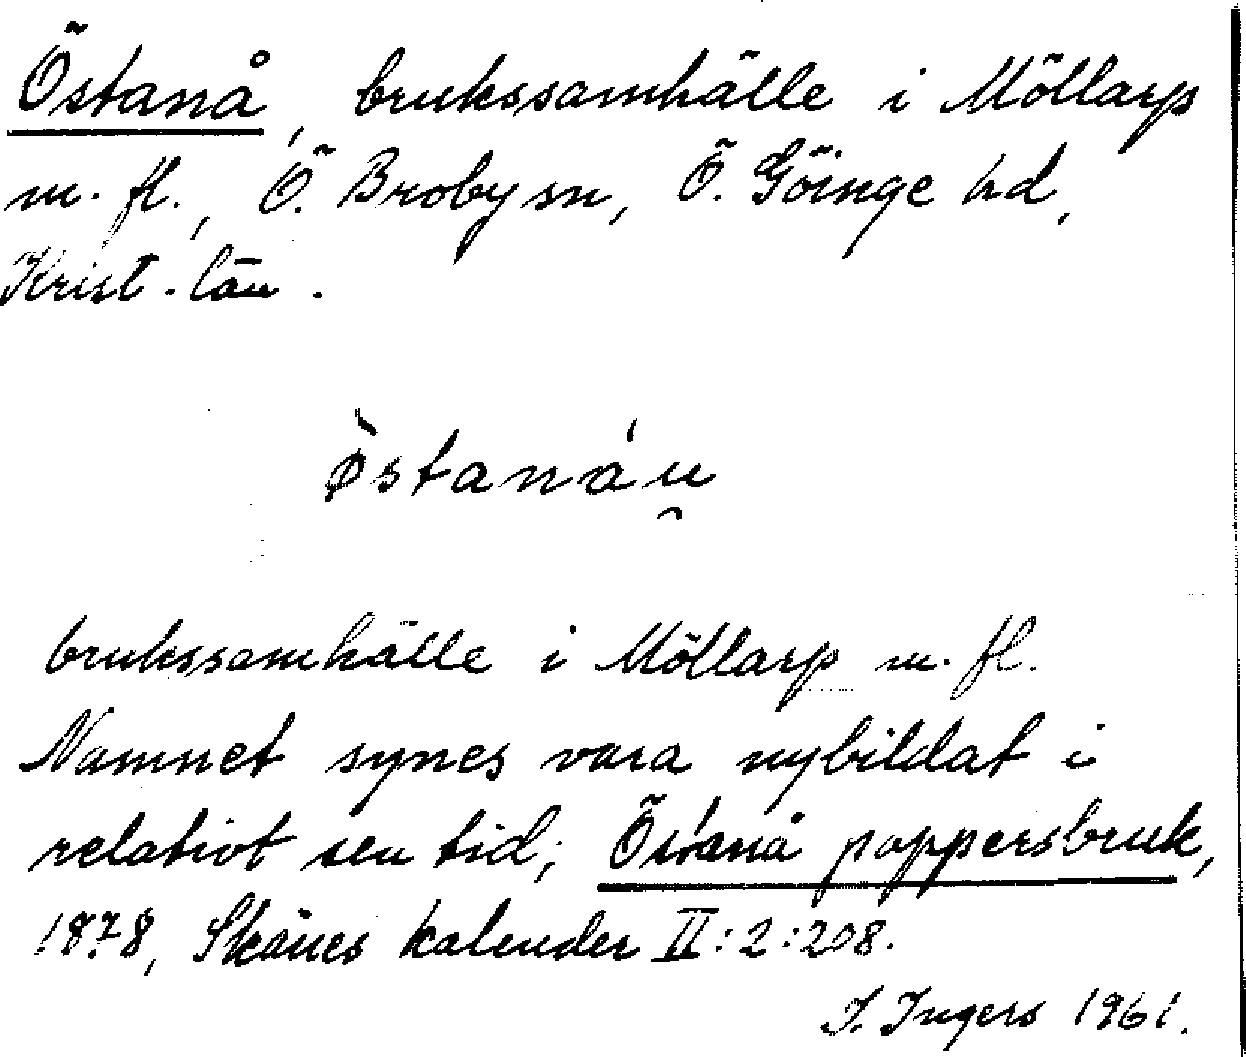 Östanå, brukssamhälle i Möllarp
m. fl., Ö. Broby sn, Ö. Göinge hd,
Krist. län.
østanáu̯
brukssamhälle i Möllarp m. fl.
Namnet synes vara nybildat i
relativt sen tid; Östanå pappersbruk,
1878, Skånes kalender II:2:208.
I. Ingers 1961.